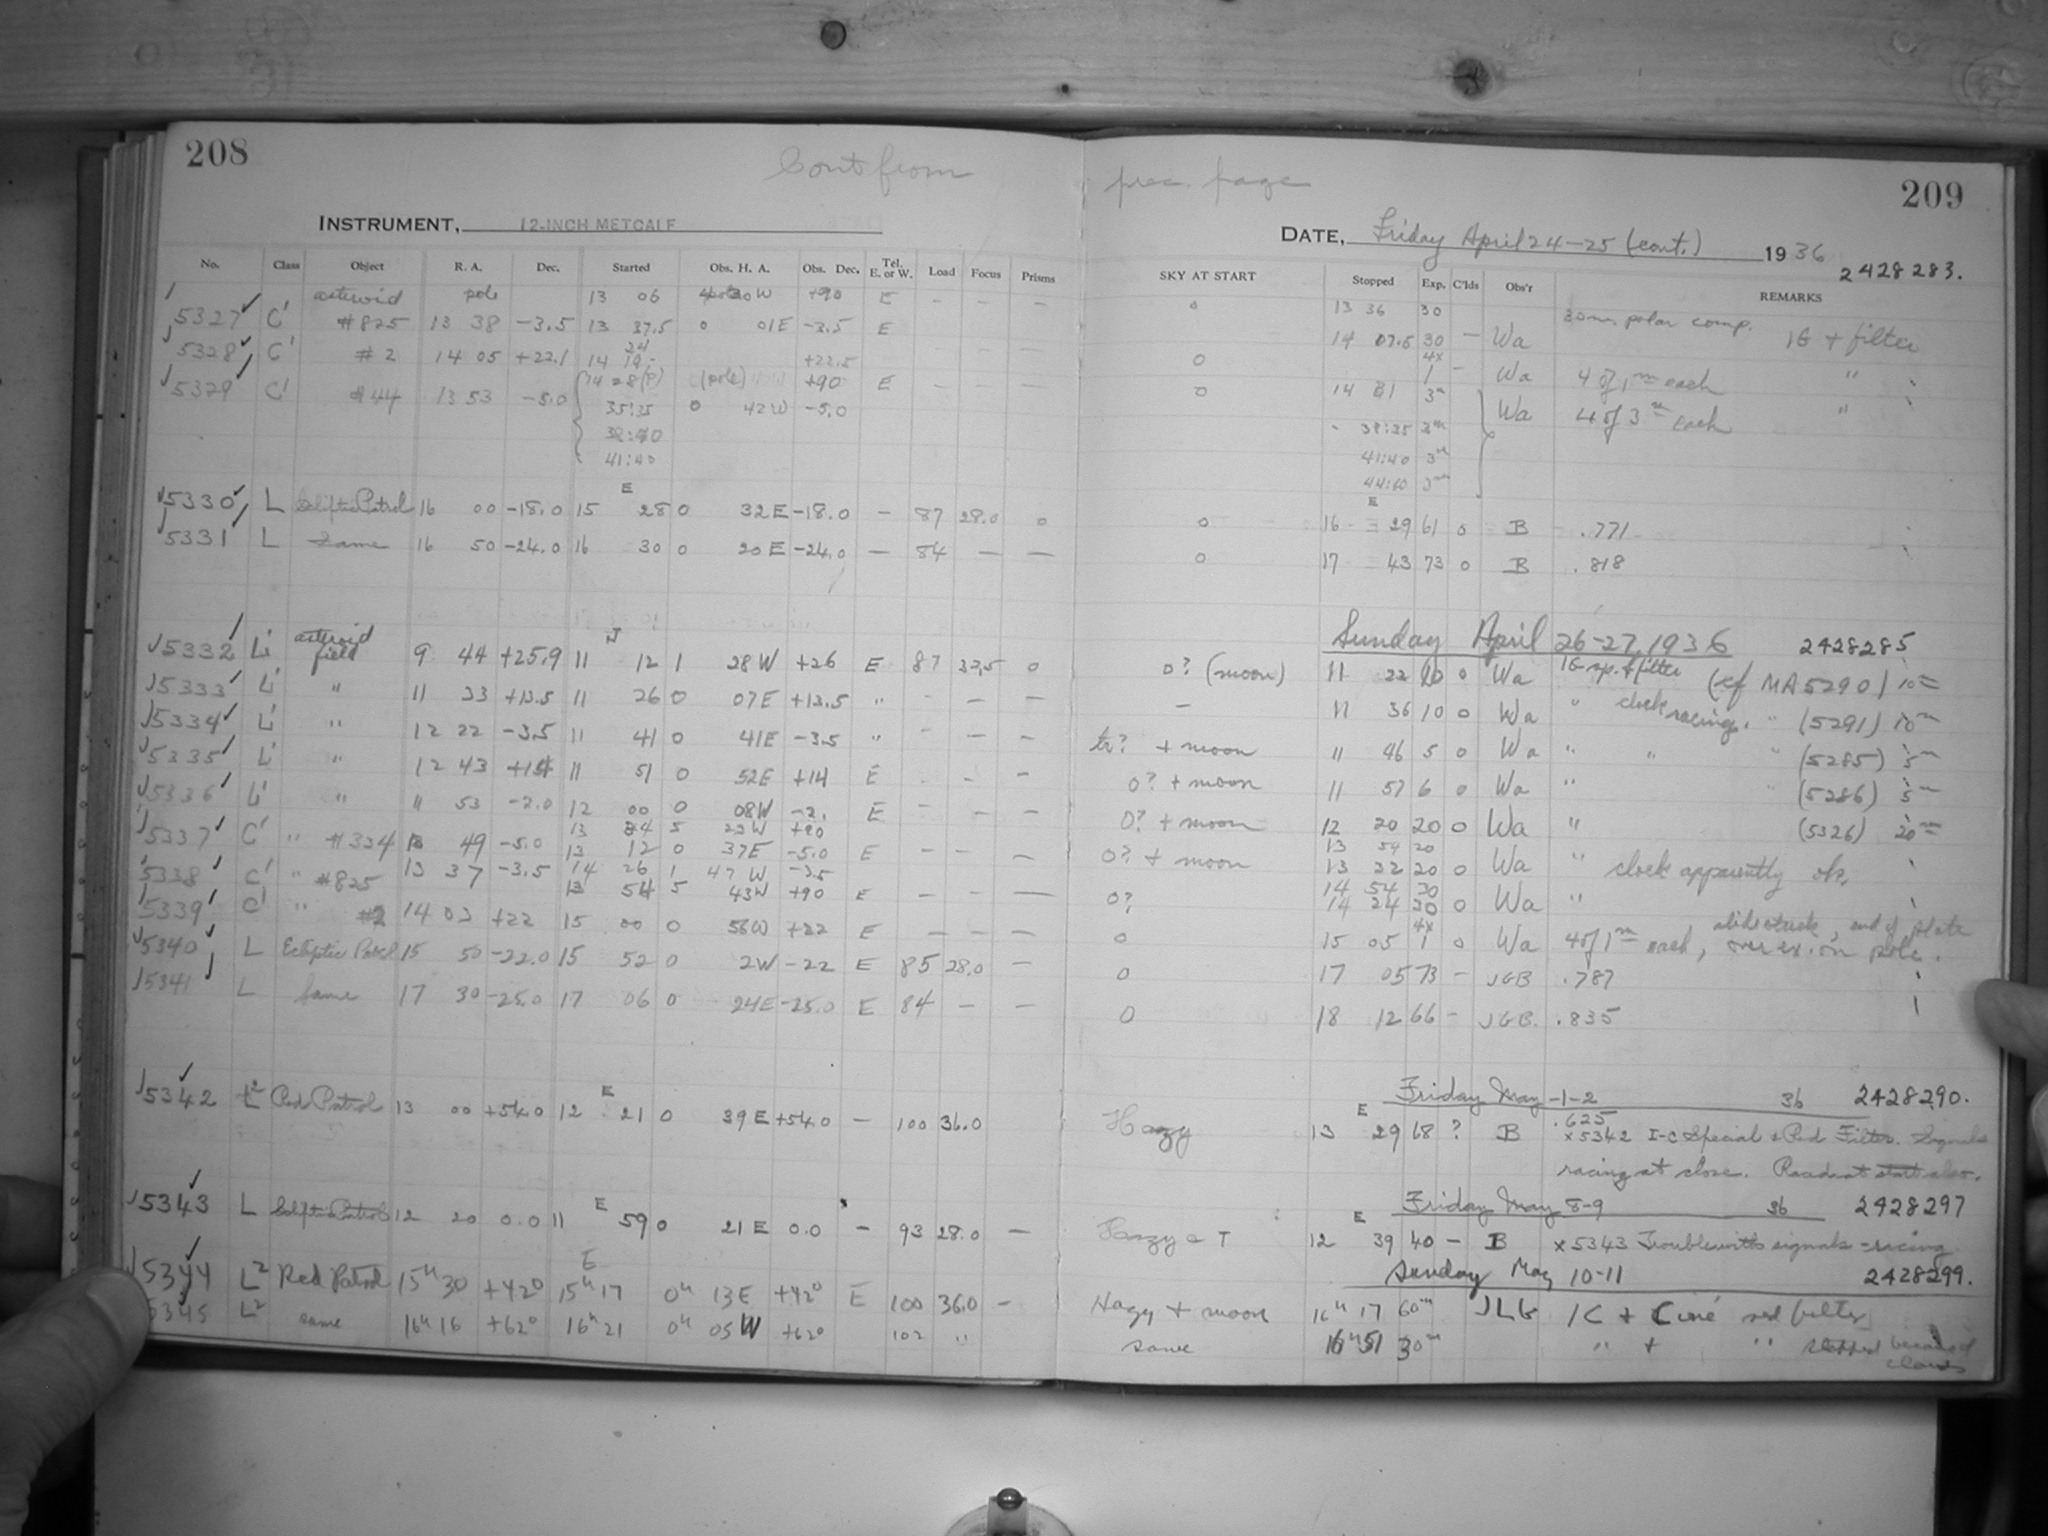 208
209
Cont from prec. page
INSTRUMENT, 12-INCH METCALF
DATE, Friday April 24-25 (cont.) 1936
2428283.
No. Class Object R. A. Dec. Started Obs. H. A. Obs. Dec. Tel. E. or W. Load Focus Prisms SKY AT START Stopped Exp. C'lds Obs'r REMARKS
asteroid pole 13 06 30 W +90 E - - - 0 13 36 30 30m. polar comp.
5327 C' #825 13 38 -3.5 13 37.5 0 01E -3.5 E 14 07.5 30 - Wa 1G + filter
5328 C' #2 14 05 +22.1 14 24 +22.5 0 4x 1 - Wa 4 of 1m each "
5329 C' #44 13 53 -5.0 14 28(P) (pole) +90 E - - - 0 14 31 3m Wa 4 of 3m each "
35:35 0 42W -5.0 38:35 3m
38:40 41:40 3m
41:40 44:40 3m
5330 L Ecliptic Patrol 16 00 -18.0 15 E 28 0 32E -18.0 - 87 28.0 0 0 16 E 29 61 0 B .771
5331 L Same 16 50 -24.0 16 30 0 20E -24.0 - 84 - - 0 17 43 73 0 B .818
Sunday April 26-27, 1936 2428285
5332 Li' asteroid field 9 44 +25.9 11 12 1 28W +26 E 87 0 0? (moon) 11 22 10 0 Wa 1G sp. + filter (cf MA5290) 10m
5333 Li' " 11 33 +13.5 11 26 0 07E +13.5 " - - - - 11 36 10 0 Wa " clock racing. " (5291) 10m
5334 Li' " 12 22 -3.5 11 41 0 41E -3.5 " - - - tr? + moon 11 46 5 0 Wa " " " (5285) 5m
5335 Li' " 12 43 +14 11 51 0 52E +14 E - - 0? + moon 11 57 6 0 Wa " " (5286) 5m
5336 Li' " " 53 -2.0 12 00 0 08W -2. E - - - 0? + moon 12 20 20 0 Wa " (5326) 20m
13 34 5 22W +90 13 54 20
5337 C' " #334 13 49 -5.0 13 12 0 37E -5.0 E - - - 0? + moon 13 32 20 0 Wa " clock apparently ok.
14 26 1 47W -3.5 14 54 30
5338 C' " #825 13 37 -3.5 13 54 5 43W +90 E - - - 0? 14 24 30 0 Wa "
5339 C' " #2 14 03 +22 15 00 0 56W +22 E - - - 0 15 05 4x 1 0 Wa 4 of 1m each, slide stuck, end of plate over ex. on pole.
5340 L Ecliptic Patrol 15 50 -22.0 15 52 0 2W -22 E 85 28.0 - 0 17 05 73 - JGB .787
5341 L Same 17 30 -25.0 17 06 0 24E -25.0 E 84 - - 0 18 12 66 - JGB. .835
Friday May 1-2 36 2428290.
5342 L2 Red Patrol 13 00 +54.0 12 E 21 0 39E +54.0 - 100 36.0 Hazy 13 E 29 68 ? B .625 x5342 I-C Special + Red Filter. Signals
racing at close. Raced at start also.
Friday May 8-9 36 2428297
5343 L Ecliptic Patrol 12 20 0.0 11 E 59 0 21E 0.0 - 93 28.0 - Hazy & T 12 E 39 40 - B x5343 Trouble with signals - racing
Sunday May 10-11 2428299.
5344 L2 Red Patrol 15h 30 +42° E 15h 17 0h 13E +42° E 100 36.0 - Hazy + moon 16h 17 60m JLG 1C + Ciné red filter
5345 L2 same 16h 16 +62° 16h 21 0h 05W +62° 102 " same 16h 51 30m " + " stopped because of clouds